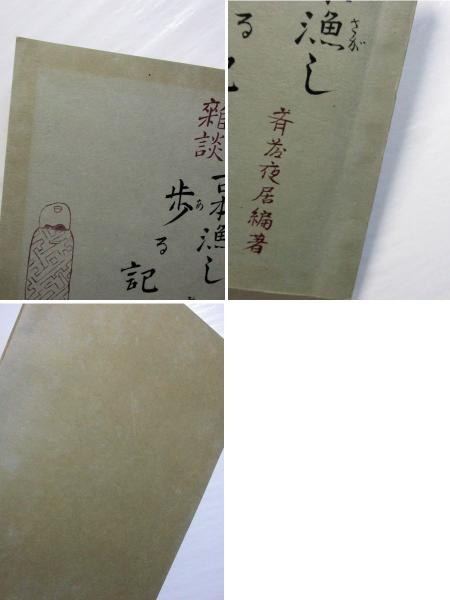 雜談
古本漁し
歩る記
あ
漁し
さが
る
斎藤夜居編著